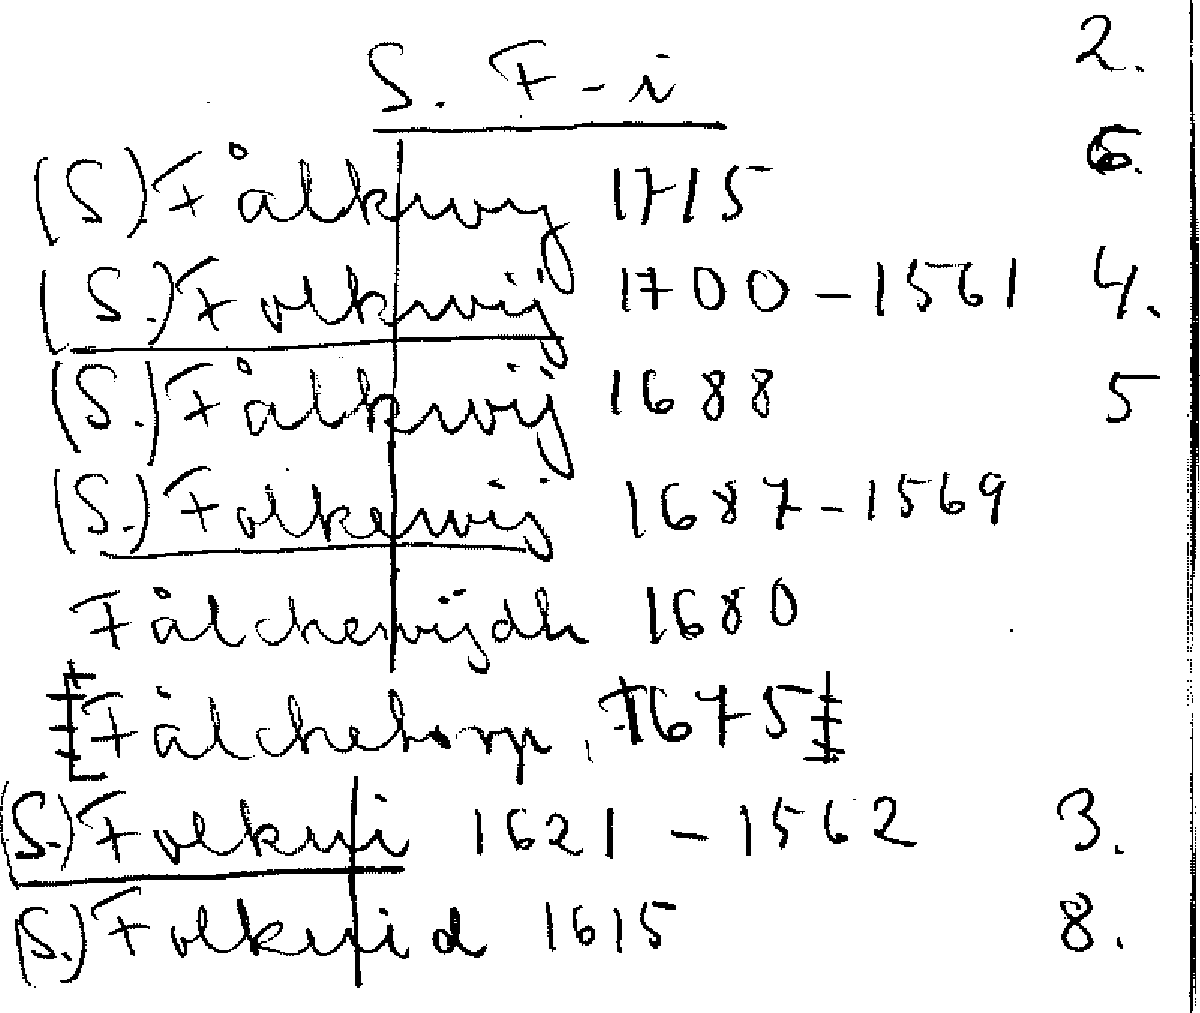 2.
S. F-i
6.
(S.) Fålkwij 1715
(S.) Folkwij 1700 - 1561 4.
(S.) Fålkwij 1688 5
(S.) Folkewij 1687 - 1569
Fålchewijdh 1680
[Fålchetorp, 1675]
(S.) Folkwi 1621 - 1562 3.
(S.) Folkuid 1615 8.